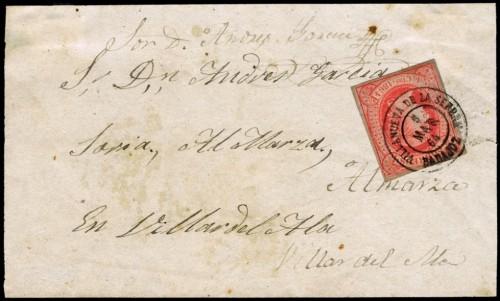 Sor. D. Andres Garcia
S. Dn. Andres Garcia
VILLANUEVA DE LA SERENA
5
MAR
64
BADAJOZ
Soria, Al Marza,
Almarza
En Villar del Ala
Villar del Ala